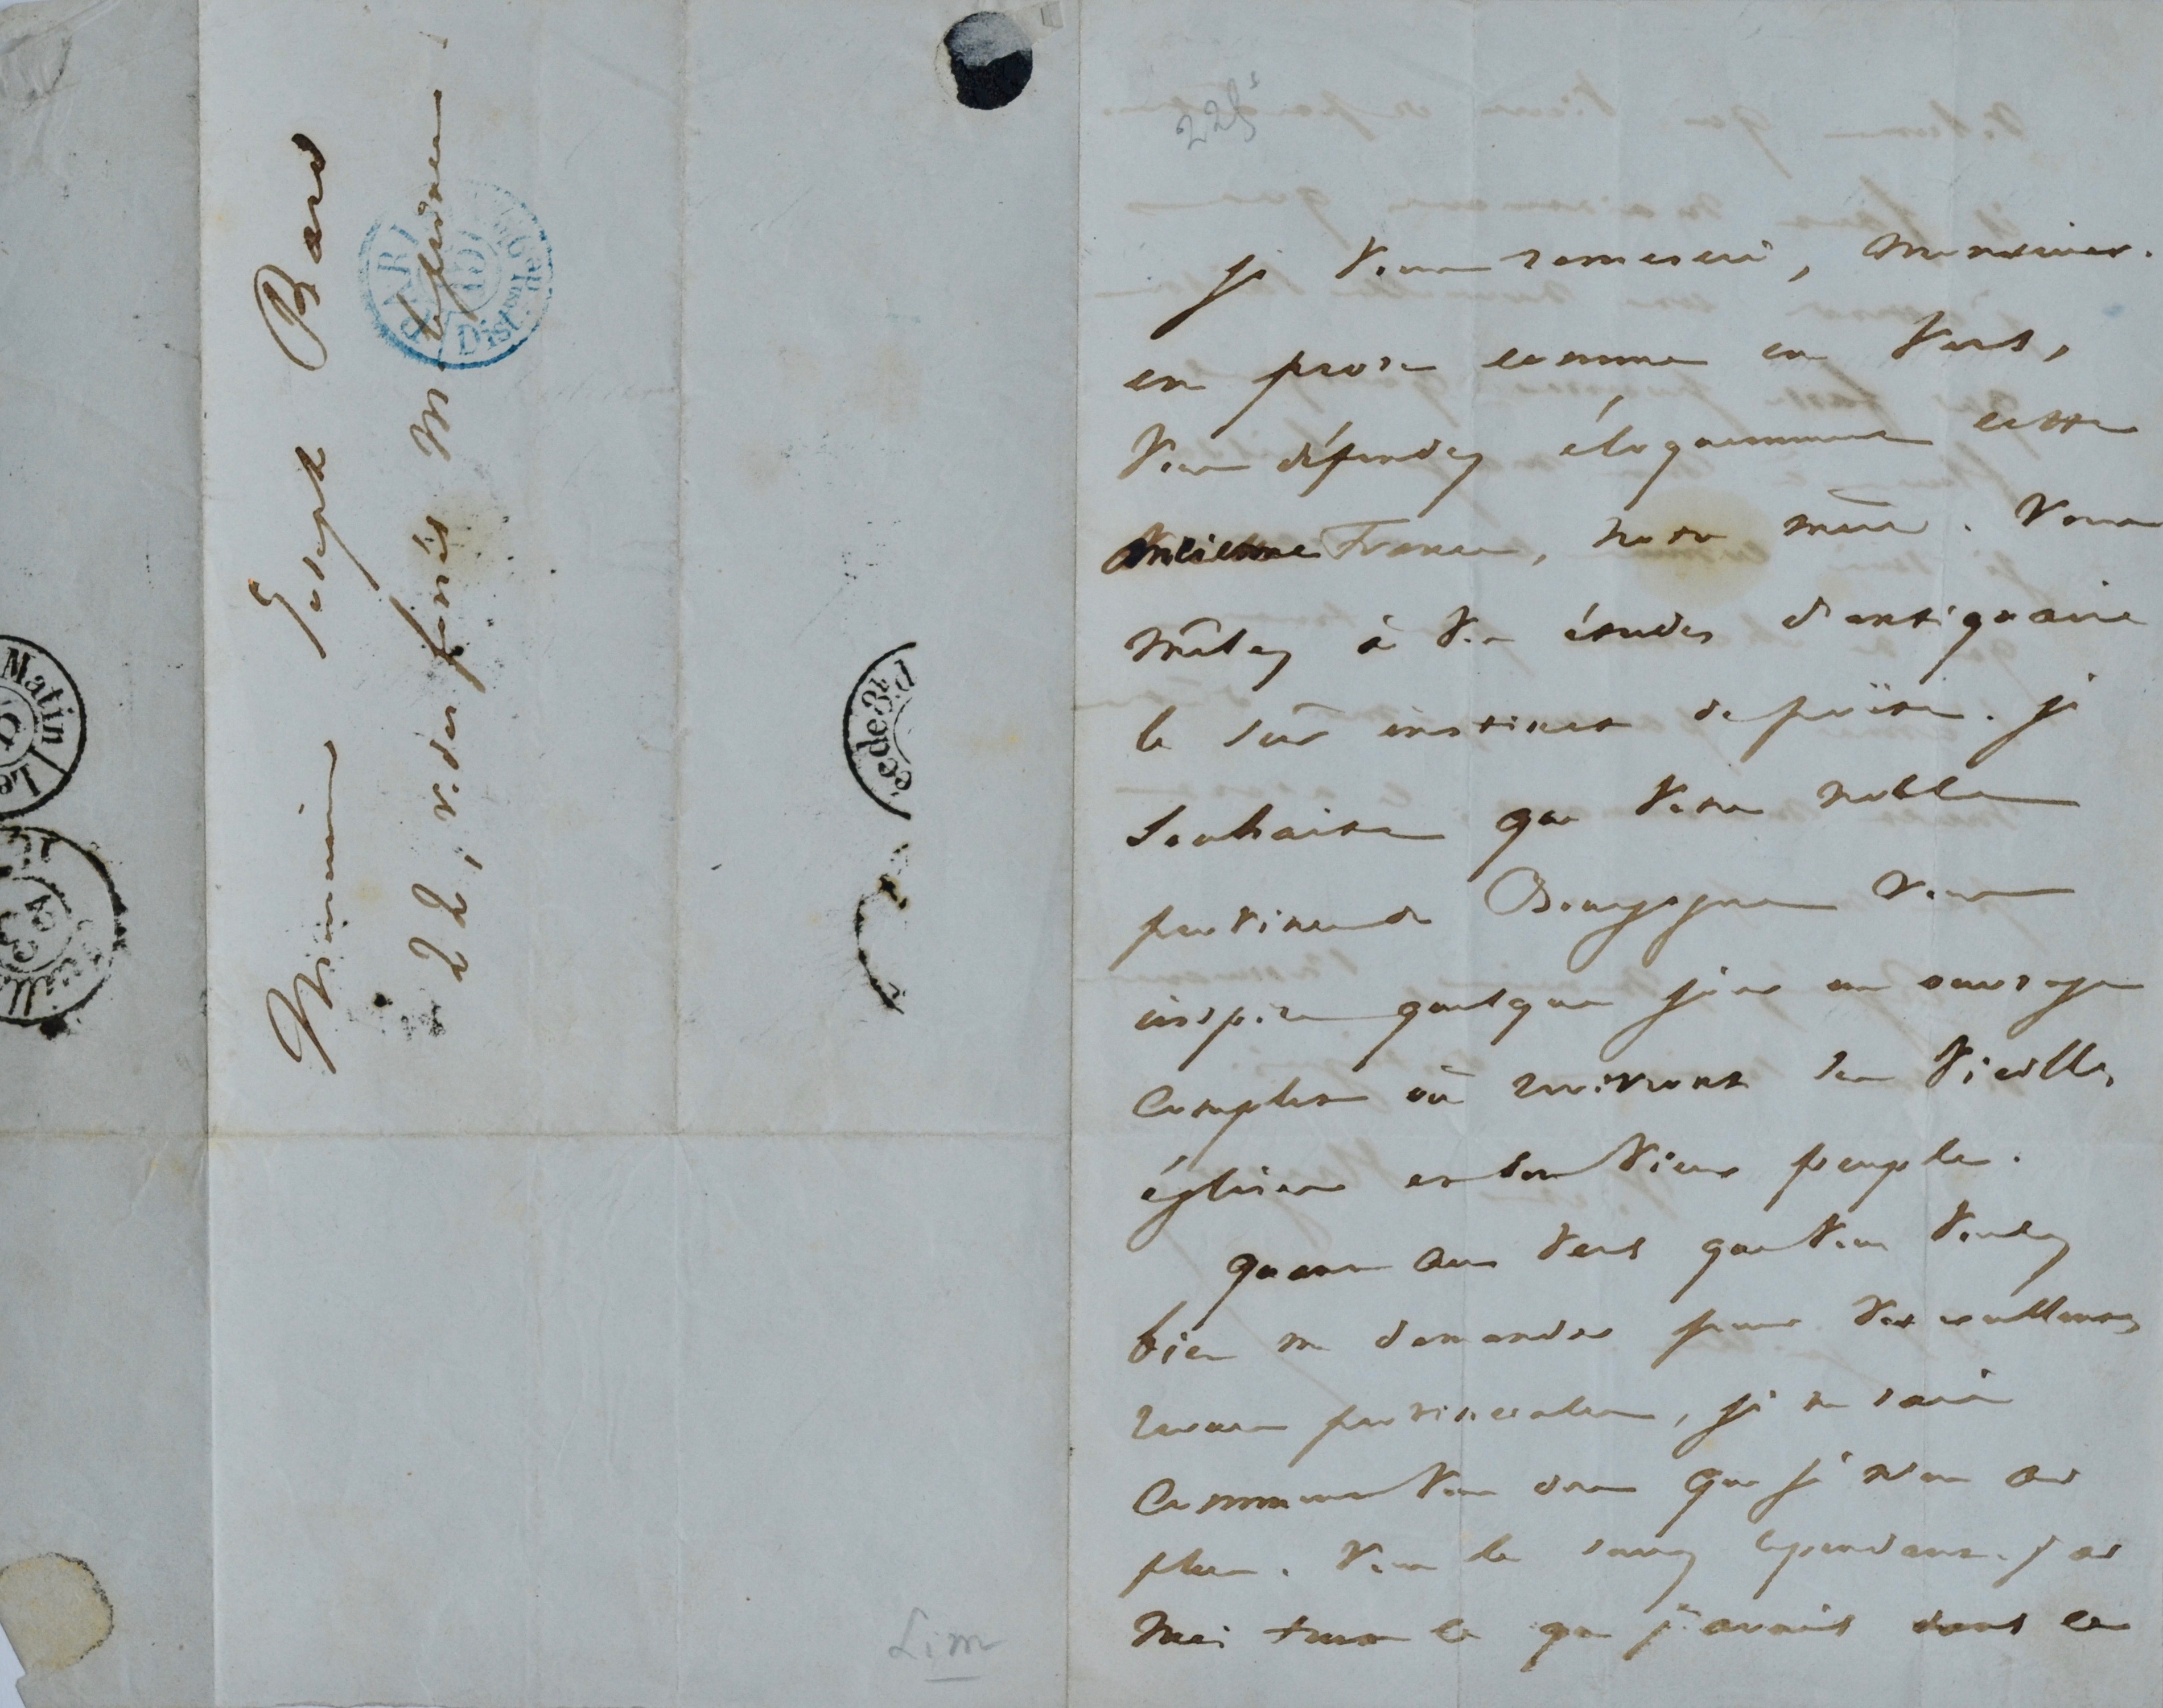 Monsieur Joseph Bard
22, r. des fossés M. le prince
PARIS
Matin
225
je vous remercie, monsieur.
en prose comme en vers,
vous défendez éloquemment cette
ancienne France, notre mère. Vous
mêlez à vos études d'antiquaire
le sûr instinct du poëte. je
souhaite que votre noble
province de Bourgogne vous
inspire quelque jour un ouvrage
complet où revivront ses vieilles
églises et son vieux peuple.
quant aux vers que vous voulez
bien me demander pour vos excellentes
revues provinciales, je ne sais
comment vous dire que je n'en ai
plus. Vous le savez cependant. j'ai
mis tout ce que j'avais dans ce
Lim